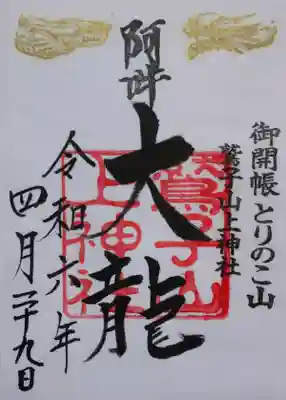 御開帳とりのこ山
鷲子山上神社
阿吽
大龍
鷲子山
上神社
令和六年
四月二十九日